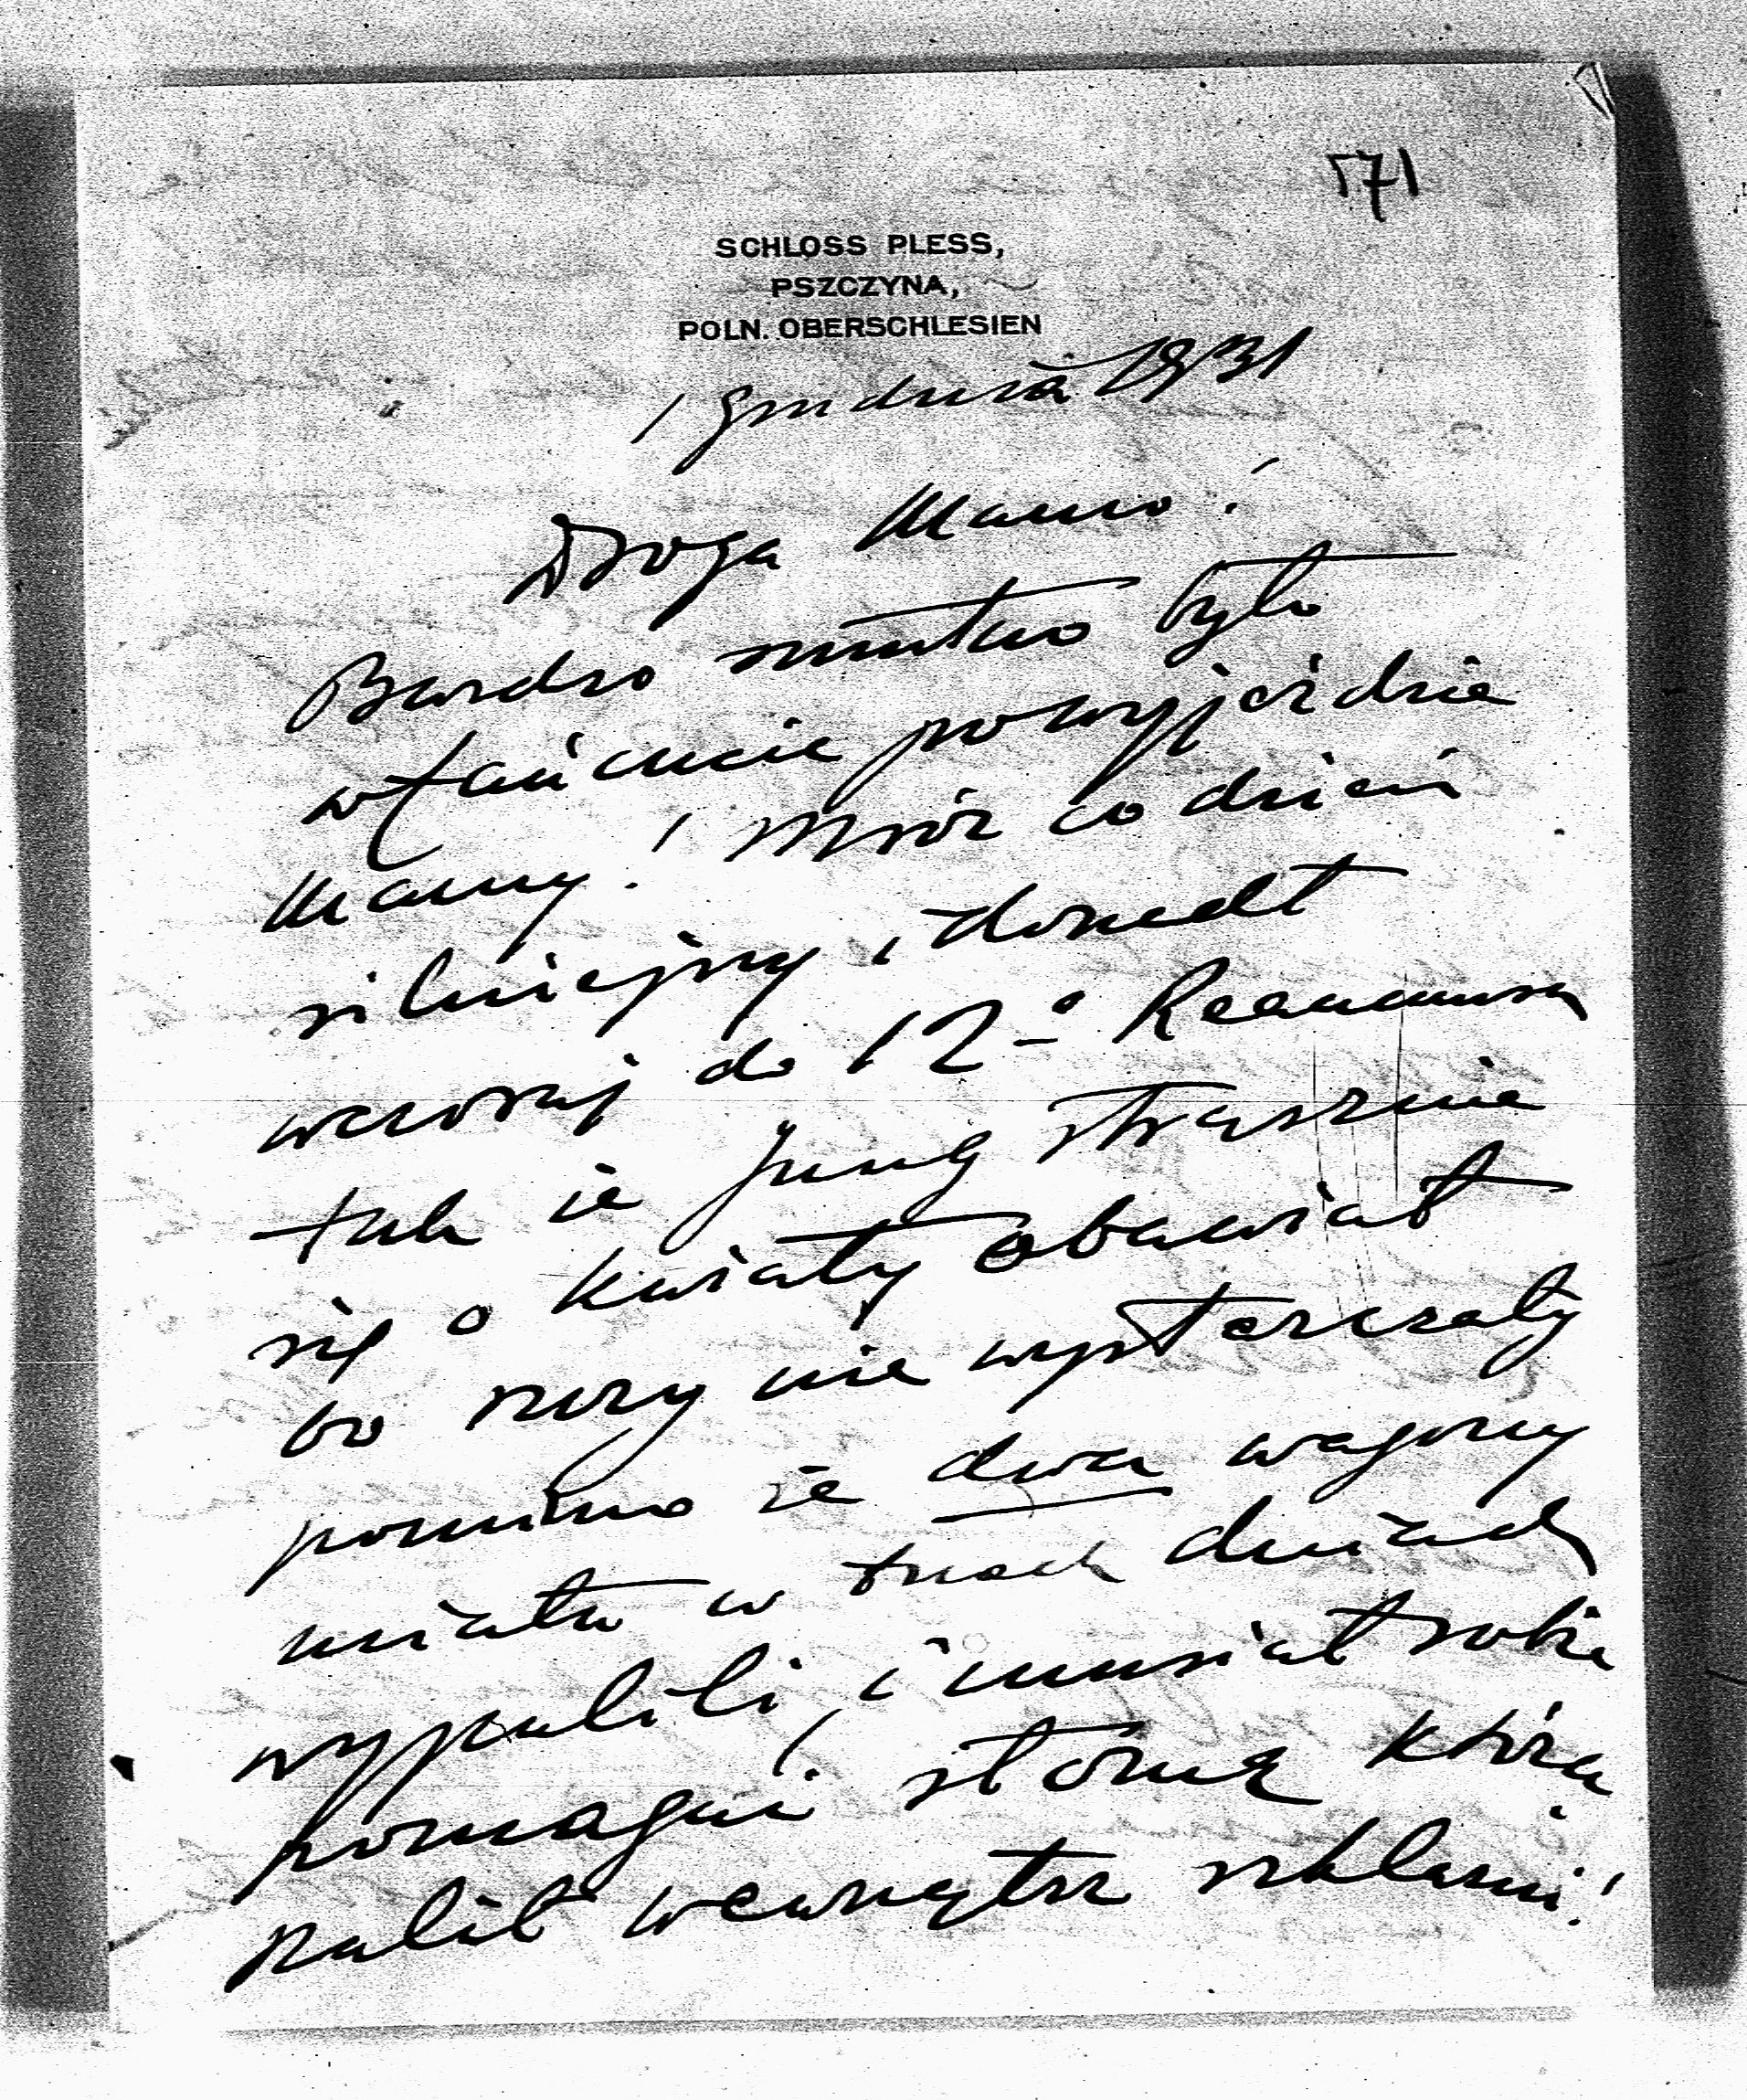 171
SCHLOSS PLESS,
PSZCZYNA,
POLN. OBERSCHLESIEN
1 grudnia 1931
Droga Mamo!
Bardzo smutno było
w Łańcucie po wyjeździe
Mamy! Mróz co dzień
silniejszy, doszedł
wczoraj do 12-° Reaumura
tak że Jung strasznie
się o kwiaty obawiał
bo rury nie wystarczały
pomimo że dwa wagony
miału w trzech dniach
wypalili, i musiał sobie
pomagać słomą którą
palił wewnątrz szklarni!